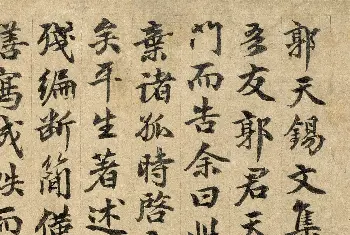 郭天錫文集
吾友郭君天
门而告余曰此
棄诸孤時啓
矣平生著述
殘编断简僅
善寫成帙而